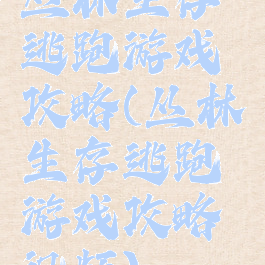 丛林生存
逃跑游戏
攻略(丛林
生存逃跑
游戏攻略
视频)